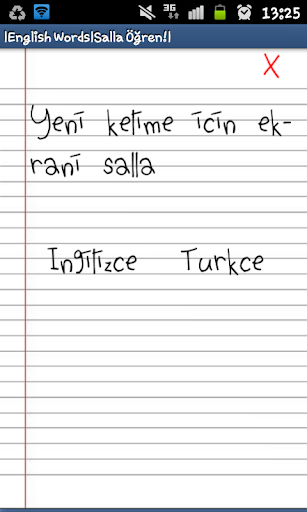 3G
13:25
|English Words|Salla Öğren!|
X
Yeni kelime icin ek-
rani salla
Ingilizce Turkce